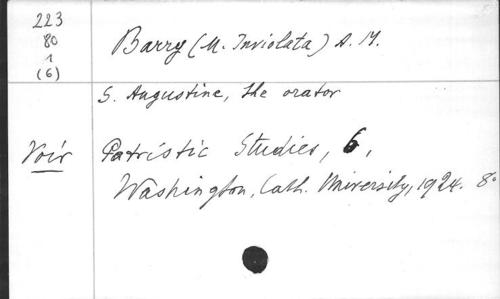 223
80
1
(6)
Barry (M. Inviolata) A. M.
S. Augustine, the orator
Voir Patristic Studies, 6,
Washington, Cath. University, 1924. 8°